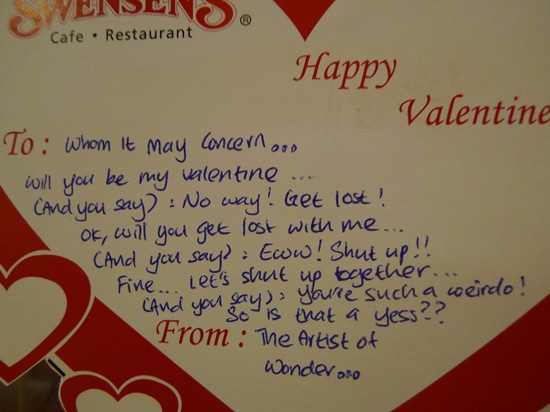 SWENSEN'S ®
Cafe • Restaurant
Happy
Valentine
To : Whom It May Concern...
Will you be my valentine ...
(And you say) : No way! Get lost!
OK, will you get lost with me...
(And you say) : Eww! Shut up!!
Fine... Let's shut up together...
(And you say) : you're such a weirdo!
So is that a yess??
From : The Artist of
Wonder...